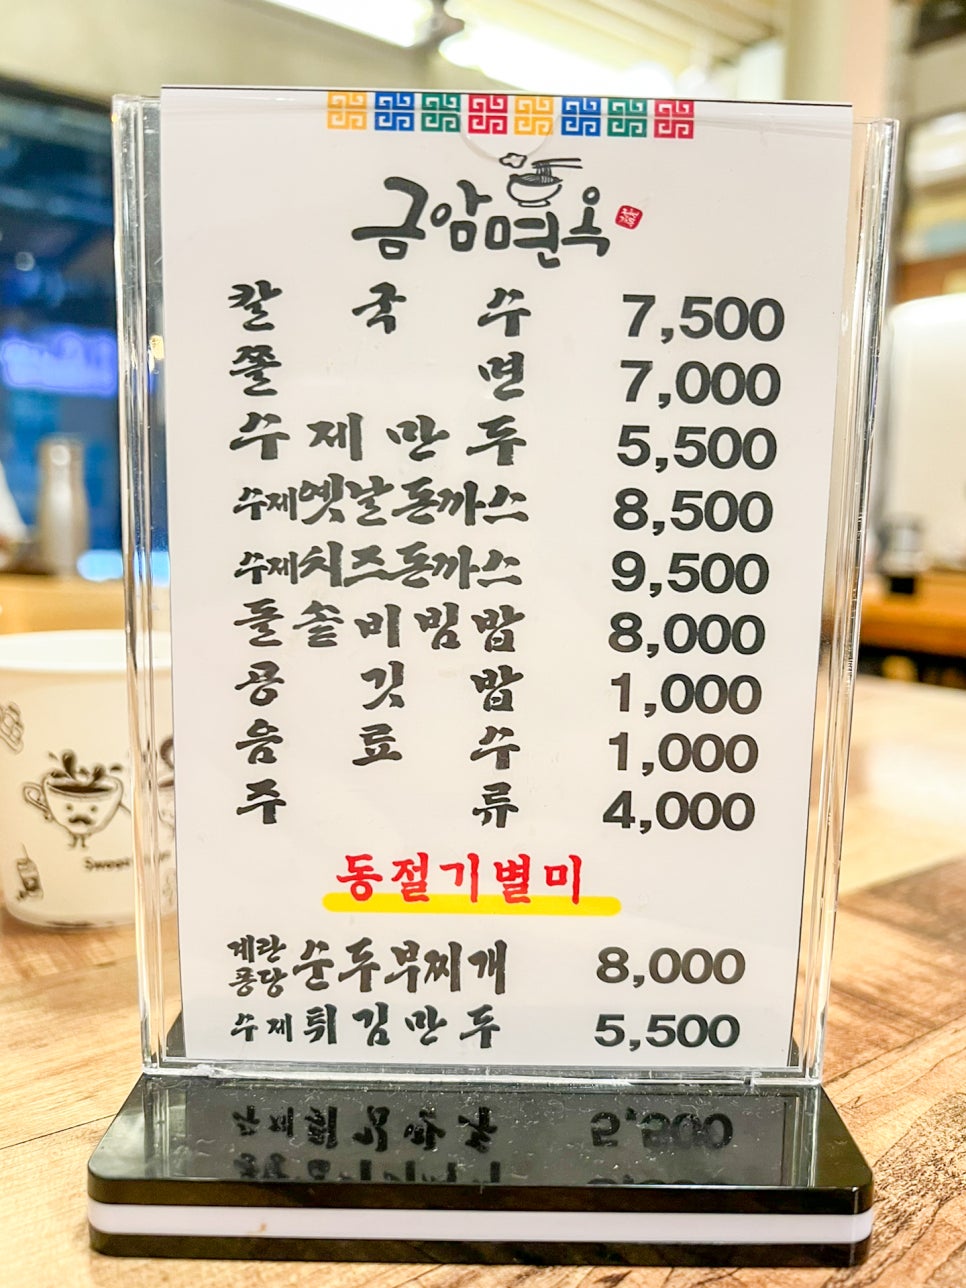 금암면옥
칼국수 7,500
쫄면 7,000
수제만두 5,500
수제옛날돈까스 8,500
수제치즈돈까스 9,500
돌솥비빔밥 8,000
공깃밥 1,000
음료수 1,000
주류 4,000
동절기별미
계란퐁당순두부찌개 8,000
수제튀김만두 5,500
Sweet